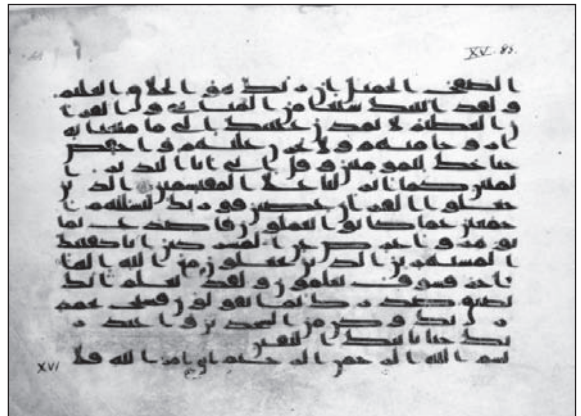 XV 85.
الصفح الجميل ان ربك هو الخلق العليم
ولقد اتينك سبعا من المثاني والقرا
ن العظيم لا تمدن عينيك الى ما متعنا به
ازوجا منهم ولا تحزن عليهم واخفض
جناحك للمومنين وقل اني انا النذير ا
لمبين كما انزلنا على المقتسمين الذين
جعلوا القران عضين فوربك لنسلنهم ا
جمعين عما كانوا يعملون فاصدع بما
تومر واعرض عن المشركين انا كفينك
المستهزين الذين يجعلون مع الله الها
اخر فسوف يعلمون ولقد نعلم انك
يضيق صدرك بما يقولون فسبح بحمد
ربك وكن من السجدين واعبد ر
بك حتى ياتيك اليقين
XVI بسم الله الرحمن الرحيم اتى امر الله فلا